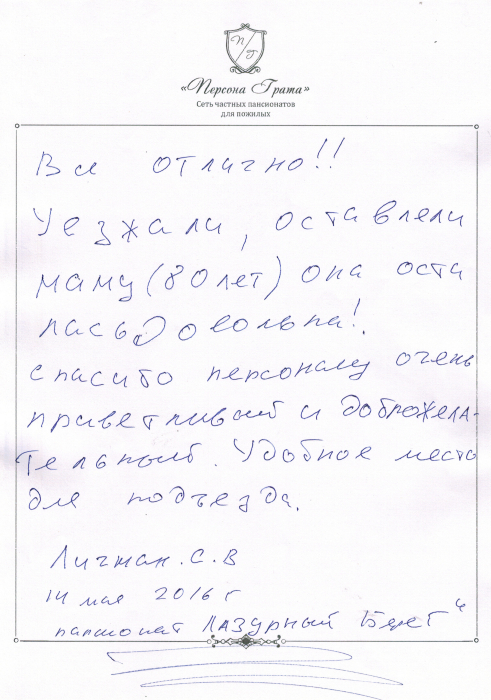 П/Г
«Персона Грата»
Сеть частных пансионатов
для пожилых
Все отлично!!
Уезжали, оставляли
маму (80 лет) она оста
лась довольна!.
спасибо персоналу очень
приветливый и доброжела-
тельный. Удобное место
для подъезда.
С.В
14 мая 2016 г
пансионат Лазурный Берег"